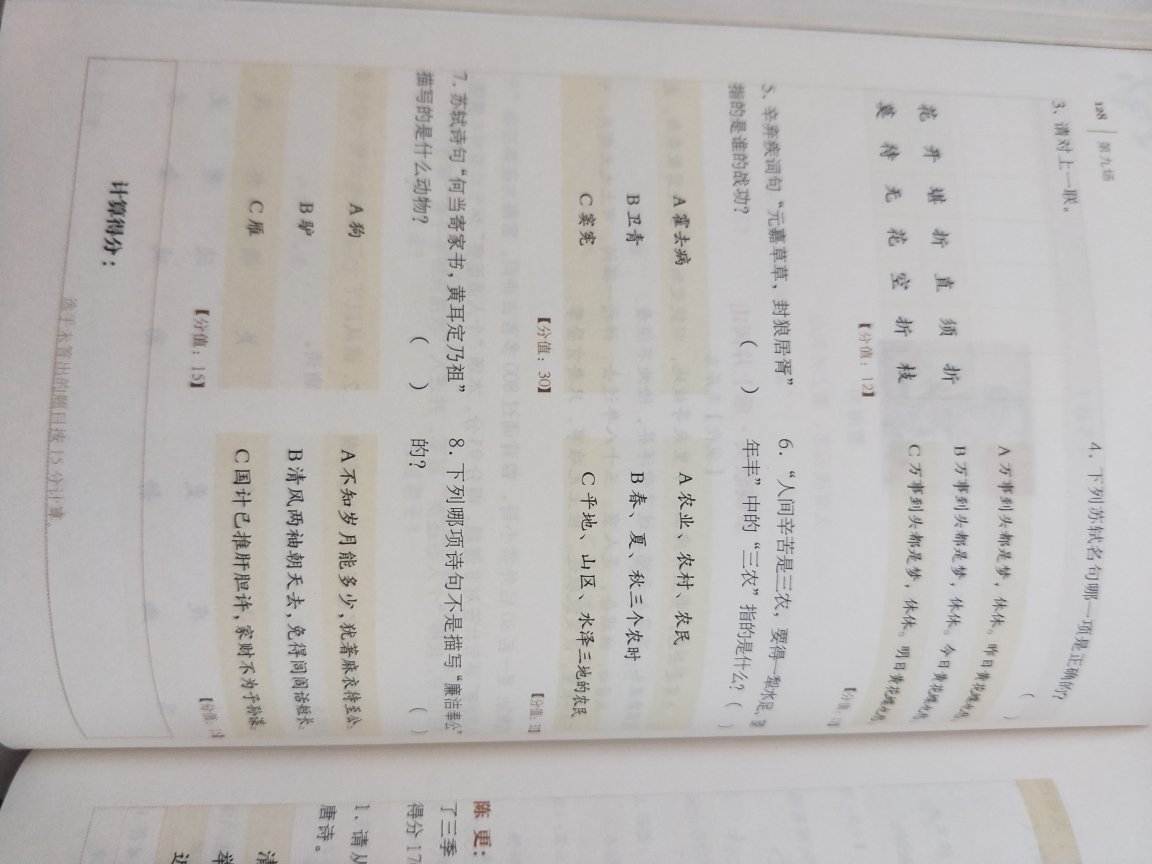 128 | 第九场
3、请对上一联。
花开堪折直须折
莫待无花空折枝
【分值：12】
4、下列苏轼名句哪一项是正确的？
( )
A 万事到头都是梦，休休。昨日黄花蝶也愁
B 万事到头都是梦，休休。今日黄花蝶也愁
C 万事到头都是梦，休休。明日黄花蝶也愁
【分值：
5、辛弃疾词句“元嘉草草，封狼居胥”
指的是谁的战功？ ( )
A 霍去病
B 卫青
C 窦宪
【分值：30】
6、“人间辛苦是三农，要得一犁水足，望
年丰”中的“三农”指的是什么？( )
A 农业、农村、农民
B 春、夏、秋三个农时
C 平地、山区、水泽三地的农民
【分值：
7、苏轼诗句“何当寄家书，黄耳定乃祖”
描写的是什么动物？ ( )
A 狗
B 驴
C 雁
【分值：15】
8、下列哪项诗句不是描写“廉洁奉公”
的？ ( )
A 不知岁月能多少，犹著麻衣待至公。
B 清风两袖朝天去，免得闾阎话短长。
C 国计已推肝胆许，家财不为子孙谋。
【分值：
计算得分：
您未答出的题目按15分计算。
陈更：
了三季
得分17
1、请从
唐诗。
清
举
近